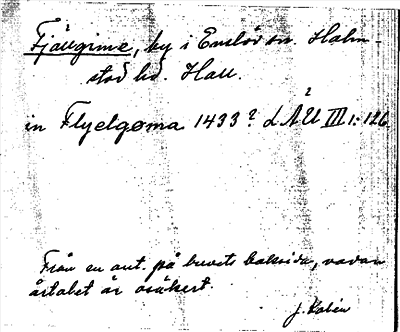 Fjällgime, by i Enslöv sn. Halm-
stad hd. Hall.
in Flyelgøma 1433? LÅU III 1:126.
Från en ant. på brevets baksida, varav
årtalet är osäkert.
J. Kalén